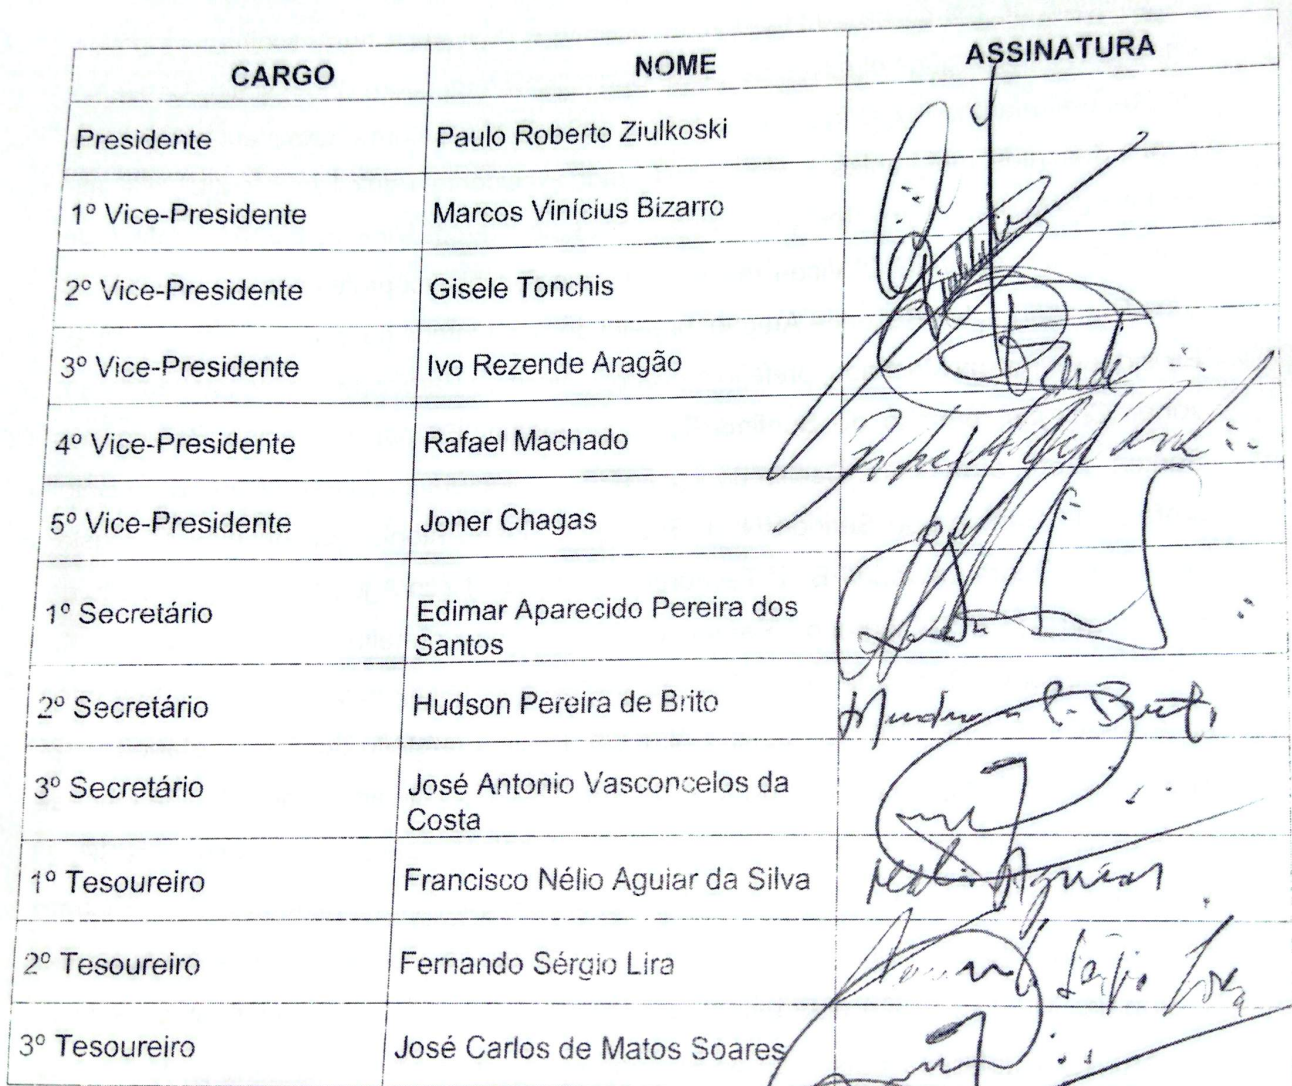 CARGO NOME ASSINATURA
Presidente Paulo Roberto Ziulkoski
1º Vice-Presidente Marcos Vinícius Bizarro
2º Vice-Presidente Gisele Tonchis
3º Vice-Presidente Ivo Rezende Aragão
4º Vice-Presidente Rafael Machado
5º Vice-Presidente Joner Chagas
1º Secretário Edimar Aparecido Pereira dos
Santos
2º Secretário Hudson Pereira de Brito
3º Secretário José Antonio Vasconcelos da
Costa
1º Tesoureiro Francisco Nélio Aguiar da Silva Nélio Aguiar
2º Tesoureiro Fernando Sérgio Lira Fernando Sérgio Lira
3º Tesoureiro José Carlos de Matos Soares